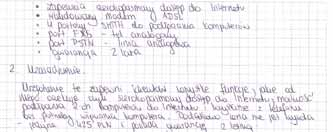 • zapewnia szerokopasmowy dostęp do Internetu
• wbudowany modem ADSL
• 4 porty do podłączenia komputerów
• port FXS - tel analogowy
• port PSTN - linia analogowa
• gwarancja 2 lata
2. Uzasadnienie.
Urządzenie te zapewni klientowi wszystkie funkcje, jakie od
niego oczekuje czyli szerokopasmowy dostęp do Internetu, możliwość
podłączenia komputera do Internetu, korzystanie z telefonu
bez potrzeby włączania komputera. Dodatkowo cena nie jest wygórowana
425 PLN i posiada gwarancję 2 letnią.